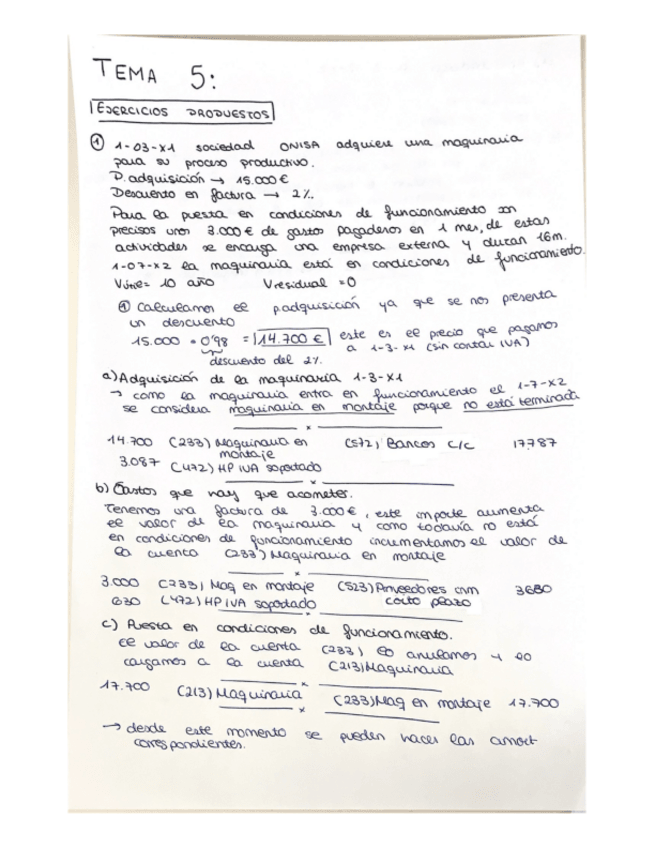 TEMA 5:
EJERCICIOS PROPUESTOS
① 1-03-X1 sociedad ONISA adquiere una maquinaria
para su proceso productivo.
P. adquisición → 15.000 €
Descuento en factura → 2%.
Para la puesta en condiciones de funcionamiento son
precisos unos 3.000 € de gastos pagaderos en 1 mes, de estas
actividades se encarga una empresa externa y duran 16m.
1-07-X2 la maquinaria está en condiciones de funcionamiento.
Vútil= 10 año Vresidual = 0
① Calculamos el p.adquisición ya que se nos presenta
un descuento
15.000 · 0'98 = 14.700 € este es el precio que pagamos
a 1-3-X1 (sin contar IVA)
descuento del 2%.
a) Adquisición de la maquinaria 1-3-X1
→ como la maquinaria entra en funcionamiento el 1-7-X2
se considera maquinaria en montaje porque no está terminada
x
14.700 (233) Maquinaria en montaje (572) Bancos c/c 17.787
3.087 (472) HP IVA soportado
x
b) Gastos que hay que acometer.
Tenemos una factura de 3.000 €, este importe aumenta
el valor de la maquinaria y como todavía no está
en condiciones de funcionamiento incrementamos el valor de
la cuenta (233) Maquinaria en montaje
x
3.000 (233) Maq en montaje (523) Proveedores inm corto plazo 3630
630 (472) HP IVA soportado
x
c) Puesta en condiciones de funcionamiento.
El valor de la cuenta (233) lo anulamos y lo
cargamos a la cuenta (213) Maquinaria
x
17.700 (213) Maquinaria (233) Maq en montaje 17.700
x
→ desde este momento se pueden hacer las amort
correspondientes.